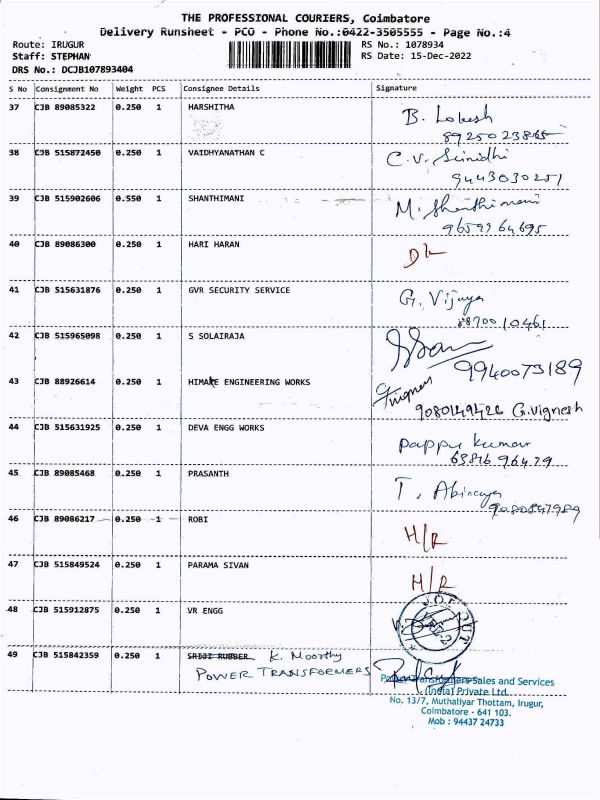 THE PROFESSIONAL COURIERS, Coimbatore
Delivery Runsheet - PCO - Phone No.:0422-3505555 - Page No.:4
Route: IRUGUR RS No.: 1078934
Staff: STEPHAN RS Date: 15-Dec-2022
DRS No.: DCJB107893404
S No Consignment No Weight PCS Consignee Details Signature
37 CJB 89085322 0.250 1 HARSHITHA B. Lokesh
8925023865
38 CJB 515872450 0.250 1 VAIDHYANATHAN C C.V. Srinidhi
9443030251
39 CJB 515902606 0.550 1 SHANTHIMANI M. Shanthimani
9659964695
40 CJB 89086300 0.250 1 HARI HARAN
41 CJB 515631876 0.250 1 GVR SECURITY SERVICE G. Vijaya
8870010461
42 CJB 515965098 0.250 1 S SOLAIRAJA
9940073189
43 CJB 88926614 0.250 1 HIMAKE ENGINEERING WORKS
9080149426 G.Vignesh
44 CJB 515631925 0.250 1 DEVA ENGG WORKS Pappu kumar
63816 96479
45 CJB 89085468 0.250 1 PRASANTH T. Abinaya
9080847989
46 CJB 89086217 0.250 1 ROBI H/R
47 CJB 515849524 0.250 1 PARAMA SIVAN H/R
48 CJB 515912875 0.250 1 VR ENGG
49 CJB 515842359 0.250 1 SRIJI RUBBER K. Moorthy
POWER TRANSFORMERS
Sales and Services
(India) Private Ltd
No. 13/7, Muthaliyar Thottam, Irugur,
Coimbatore - 641 103.
Mob : 94437 24733